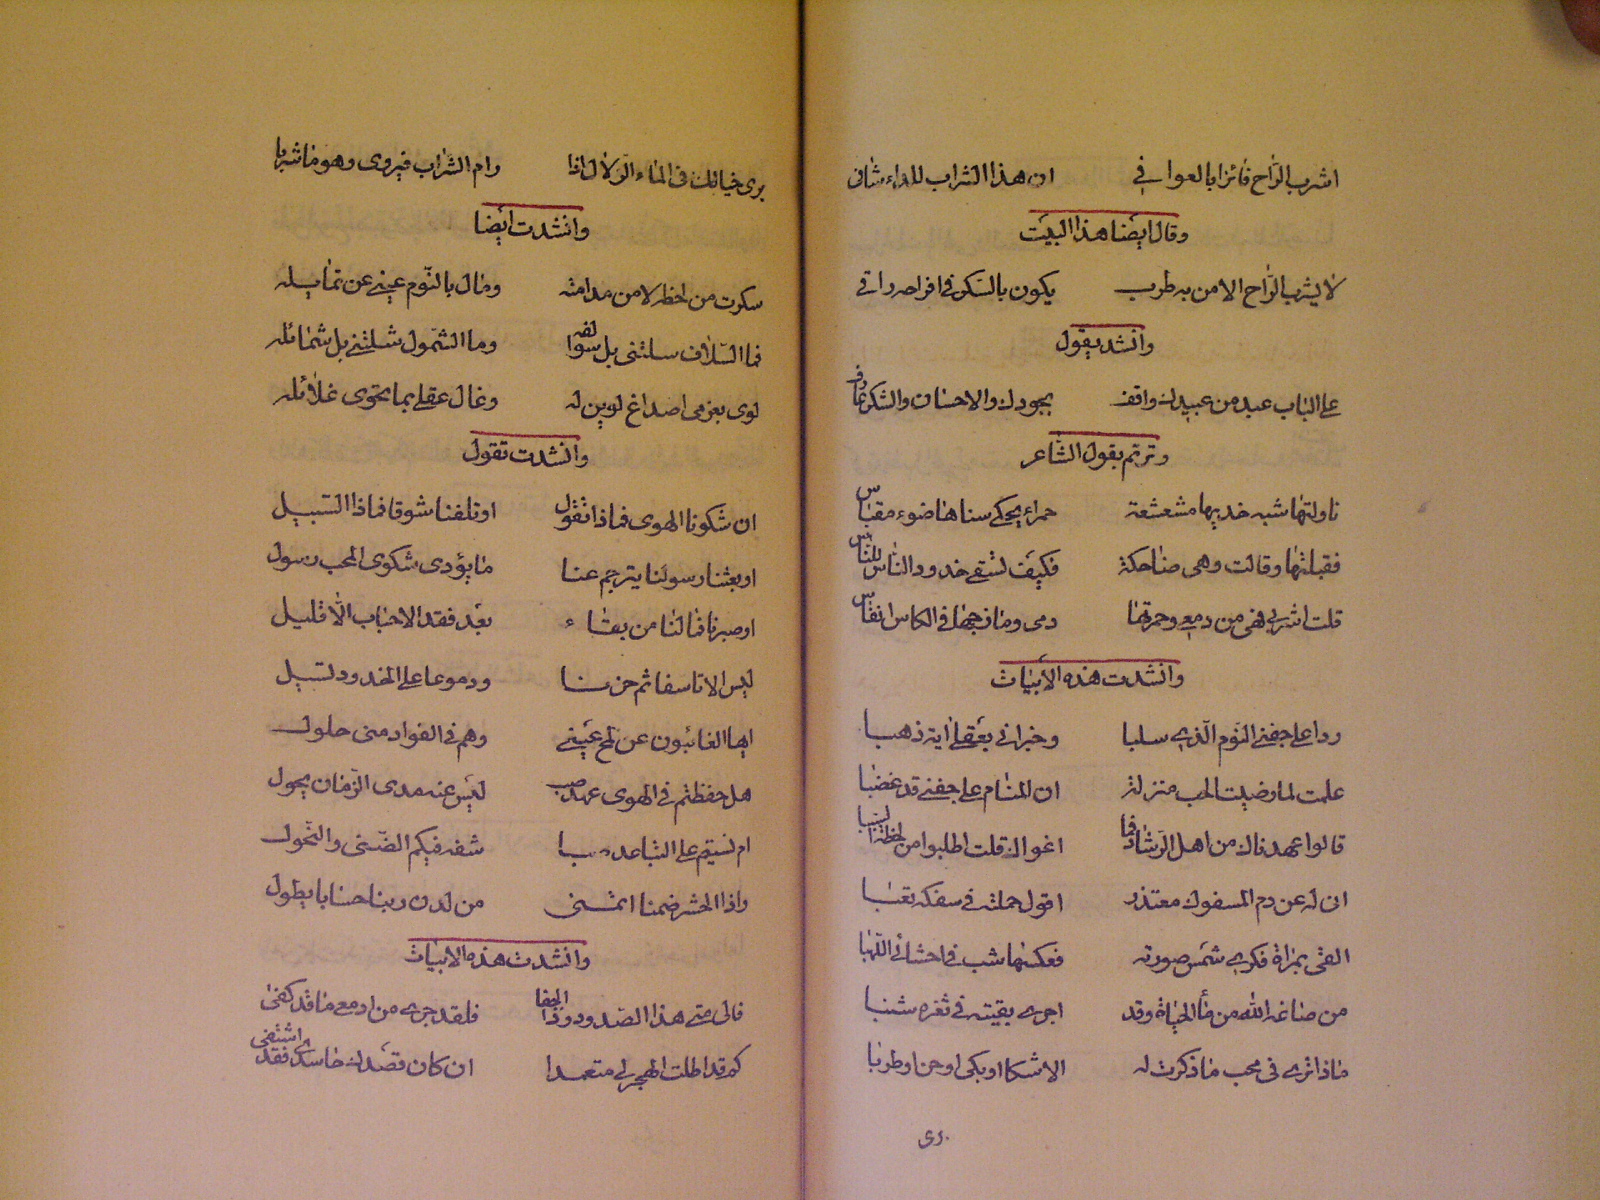 اشرب الراح فائزا بالعوافي ان هذا الشراب للداء شافى
وقال ايضا هذا البيت
لا يشرب الراح الا من به طرب يكون بالسكر في افراحه راقي
وانشد يقول
على الباب عبد من عبيدك واقف بجودك والاحسان والشكر عارف
وترنم بقول الشاعر
ناولتها شبه خديها مشعشعة حمراء يحكي سناها ضوء مقباس
فقبلتها وقالت وهى ضاحكة فكيف تسقي خدود الناس للناس
قلت اشربي فهى من دمعي وحمرتها دمى ومازجها في الكاس انفاس
وانشدت هذه الابيات
ردا على جفني النوم الذي سلبا وخبراني بعقلي اية ذهبا
علمت لما رضيت الحب منزلة ان المنام على جفني قد غضبا
قالوا عهدناك من اهل الرشاد فما اغواك قلت اطلبوا من لحظه السببا
انى له عن دم المسفوك معتذر اقول حملته في سفكه تعبا
القى بمراة فكري شمس صورته فعكسها شب في احشائي اللهبا
من صاغه الله من ماء الحياة وقد اجرى بقيته في ثغره شنبا
ماذا ترى في محب ما ذكرت له الا شكا او بكى او حن او طربا
يرى خيالك في الماء الزلال اذا رام الشراب فيروى وهو ما شربا
وانشدت ايضا
سكرت من لحظه لا من مدامته ومال بالنوم عيني عن تمايله
فما السلاف سلتنى بل سوالفه وما الشمول شلتني بل شمائله
لوى بعزمى اصداغ لوين له وغال عقلي بما تحوى غلائله
وانشدت تقول
ان شكونا الهوى فماذا نقول او تلفنا شوقا فماذا السبيل
او بعثنا رسولنا يترجم عنا ما يؤدى شكوى المحب رسول
او صبرنا فما لنا من بقاء بعد فقد الاحباب الا قليل
ليس الا تاسفا ثم حزنا ودموعا على الخدود تسيل
ايها الغائبون عن لمح عيني وهم في الفواد منى حلول
هل حفظتم في الهوى عهد صب ليس عنه مدى الزمان يحول
ام نسيتم على التباعد صبا شفه فيكم الضنى والنحول
واذا الحشر ضمنا اتمنى من لدن ربنا حسابا يطول
وانشدت هذه الابيات
قالى متى هذا الصدود وذا الجفا فلقد جرى من ادمعي ما قد كفى
كم قد اطلت الهجر لي متعمدا ان كان قصدك حاسدي فقد اشتفى